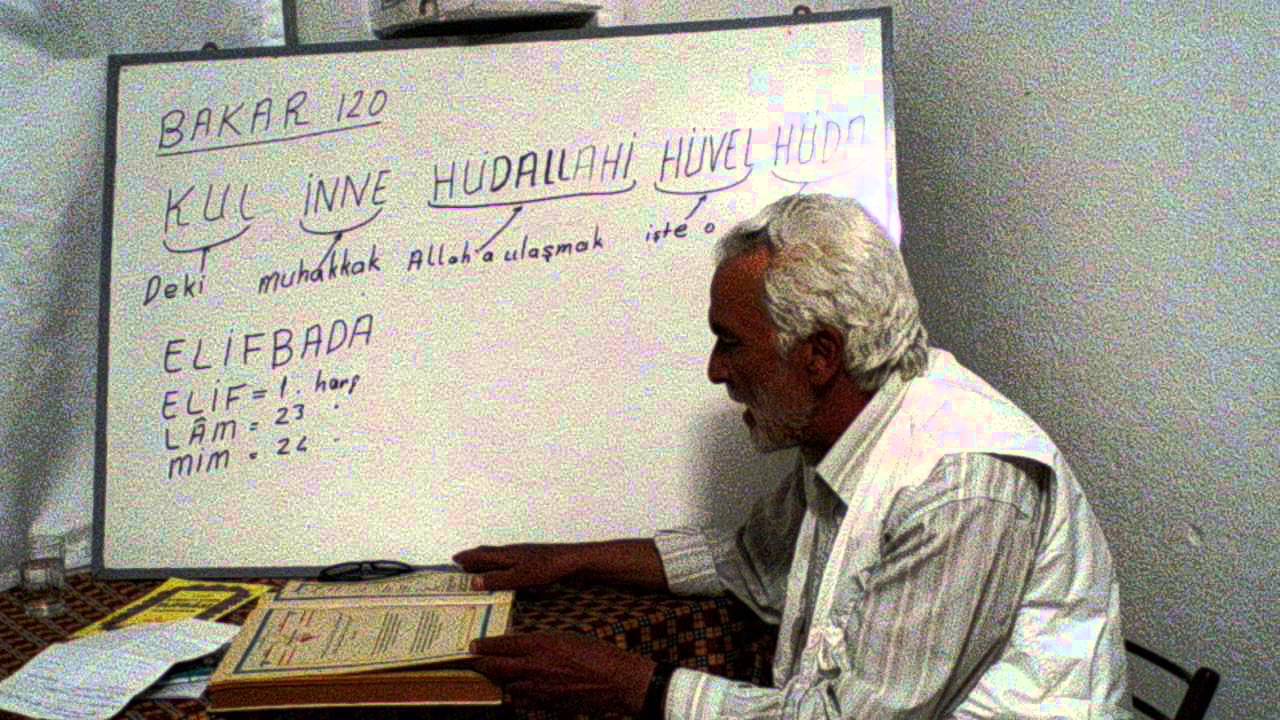 BAKAR 120
KUL İNNE HÜDALLAHİ HÜVEL HÜDA
Deki muhakkak Allah'a ulaşmak işte o
ELİFBADA
ELİF = 1. harf
LÂM = 23 "
MİM = 24 "